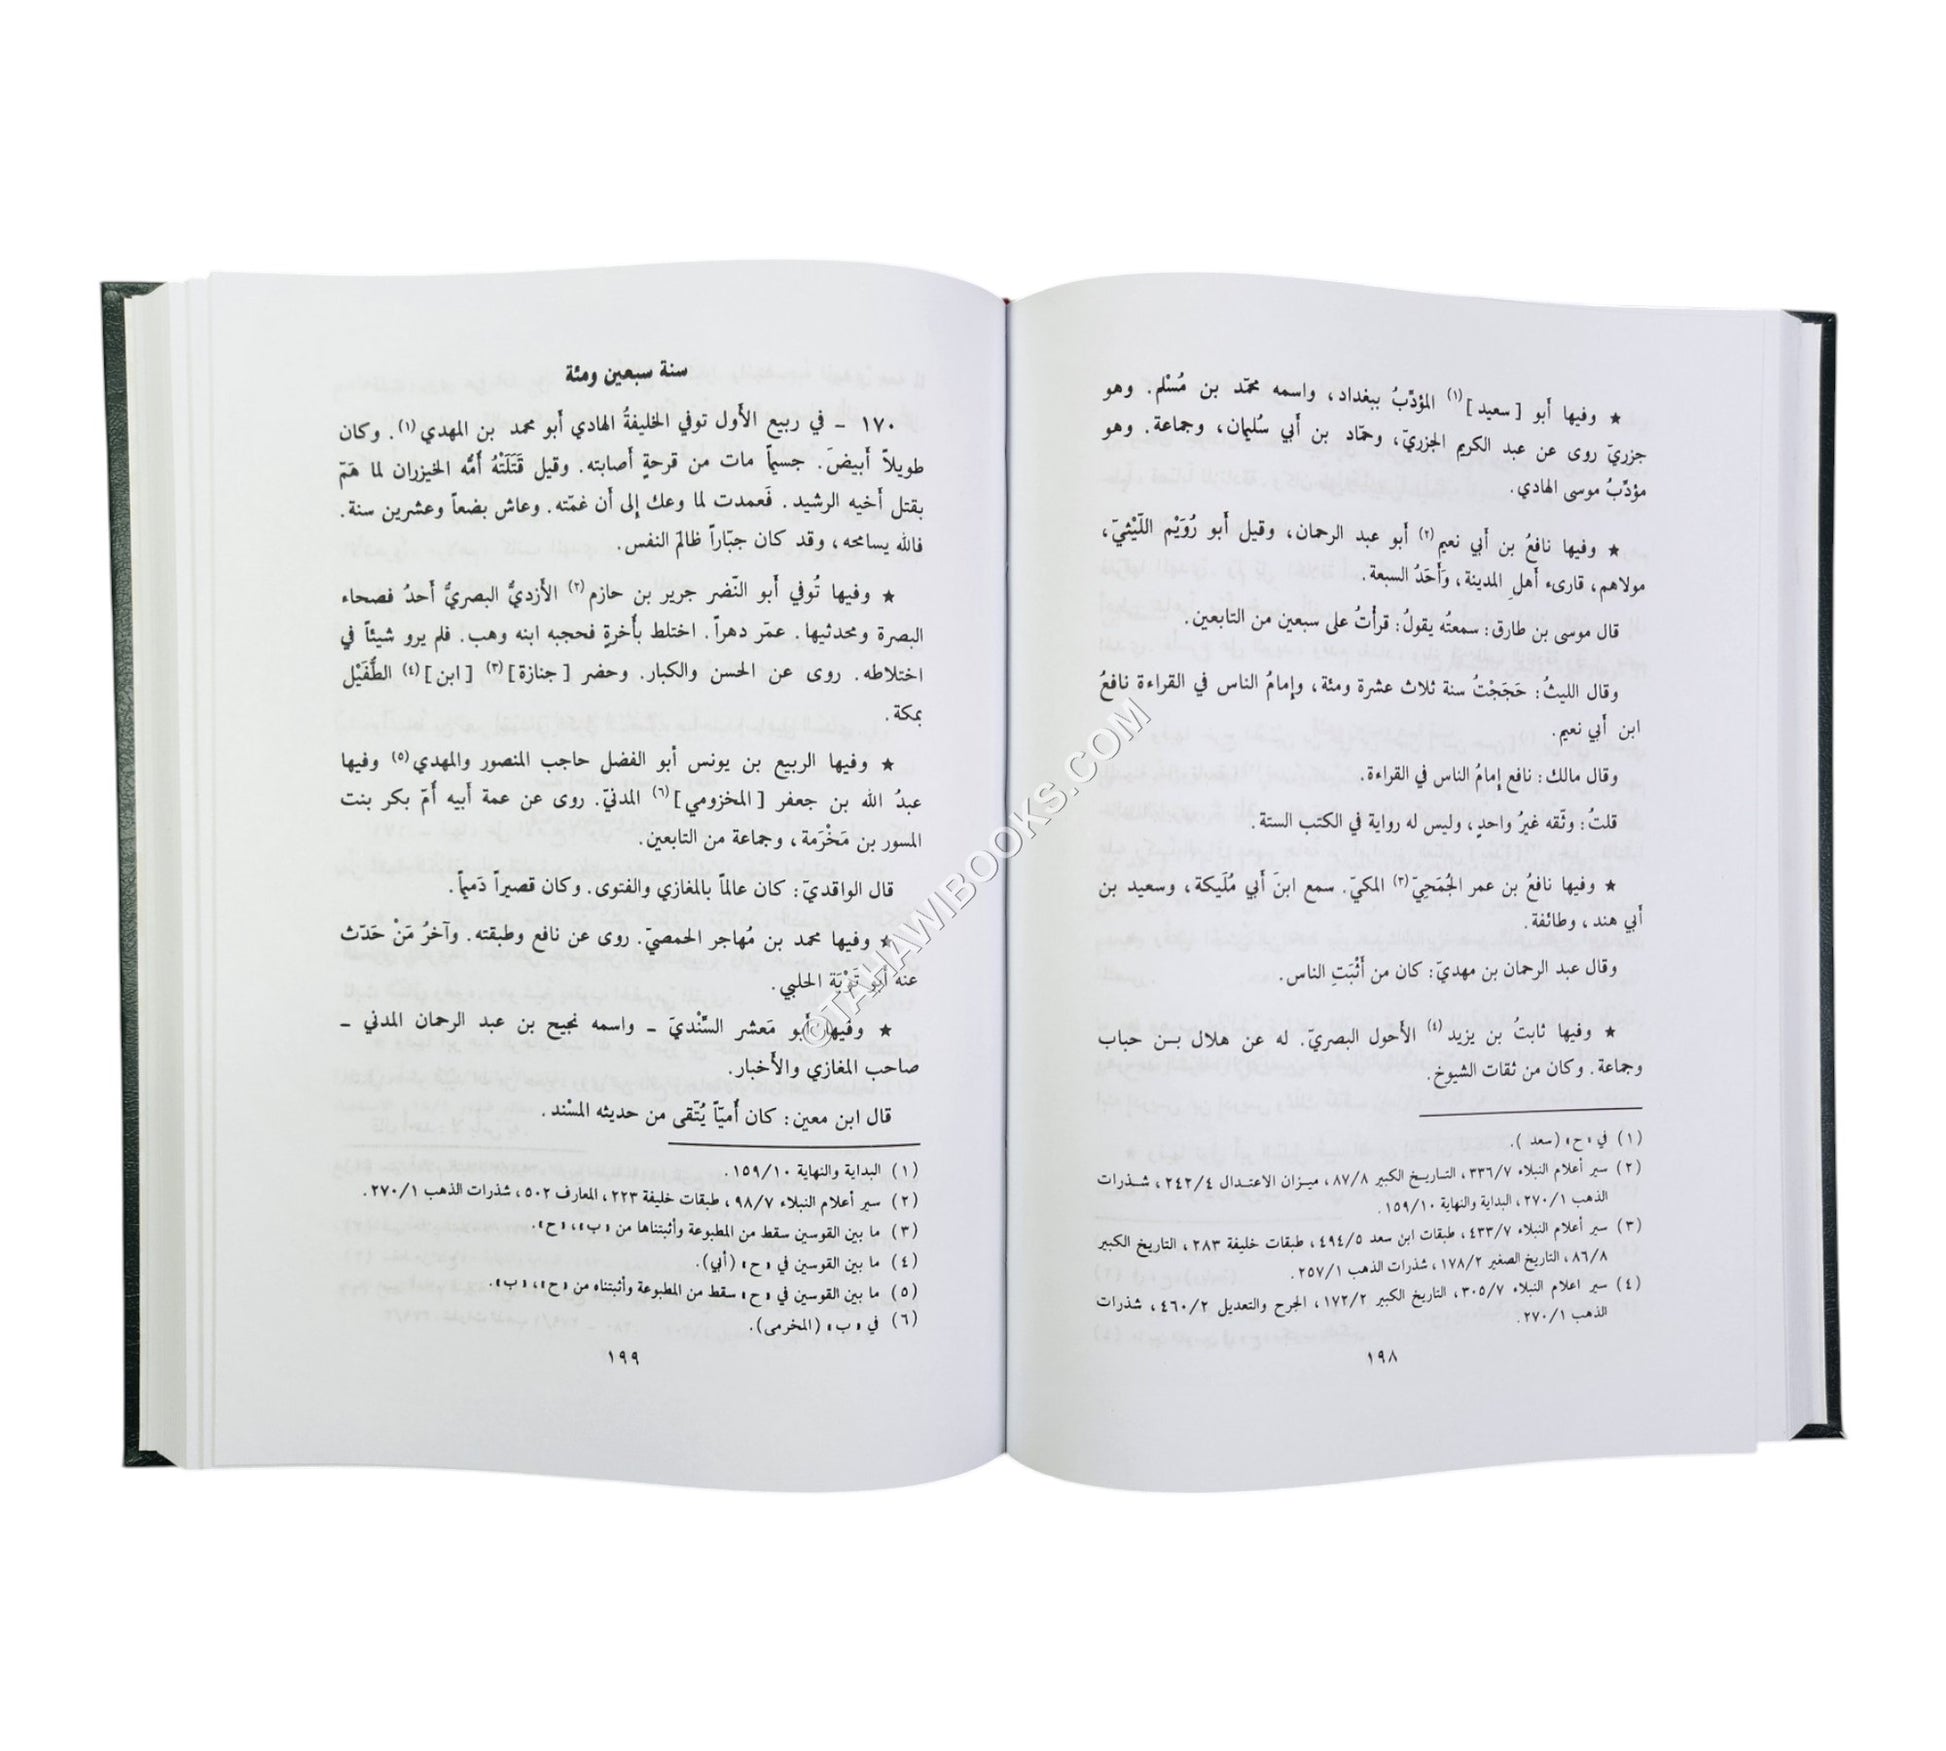 ★ وفيها أبو [سعيد](١) المؤدِّبُ ببغداد، واسمه محمّد بن مُسْلم. وهو
جزريّ روى عن عبد الكريم الجزريّ، وحمّاد بن أبي سُليمان، وجماعة. وهو
مؤدِّبُ موسى الهادي.
★ وفيها نافعُ بن أبي نعيم(٢) أبو عبد الرحمان، وقيل أبو رُوَيْم اللّيْثيّ،
مولاهم، قارىء أهلِ المدينة، وَأَحَدُ السبعة.
قال موسى بن طارق: سمعتُه يقولُ: قرأتُ على سبعين من التابعين.
وقال الليثُ: حَجَجْتُ سنة ثلاث عشرة ومئة، وإمامُ الناس في القراءة نافعُ
ابن أبي نعيم.
وقال مالك: نافع إمامُ الناس في القراءة.
قلتُ: وثّقه غيرُ واحدٍ، وليس له رواية في الكتب الستة.
★ وفيها نافعُ بن عمر الجُمَحِيّ(٣) المكيّ. سمع ابنَ أبي مُلَيكة، وسعيد بن
أبي هند، وطائفة.
وقال عبد الرحمان بن مهديّ: كان من أَثْبَتِ الناس.
★ وفيها ثابتُ بن يزيد(٤) الأحول البصريّ. له عن هلال بن حباب
وجماعة. وكان من ثقات الشيوخ.
(١) في «ح» (سعد).
(٢) سير أعلام النبلاء ٣٣٦/٧، التاريخ الكبير ٨٧/٨، ميزان الاعتدال ٢٤٢/٤، شذرات
الذهب ٢٧٠/١، البداية والنهاية ١٥٩/١٠.
(٣) سير أعلام النبلاء ٤٣٣/٧، طبقات ابن سعد ٤٩٤/٥، طبقات خليفة ٢٨٣، التاريخ الكبير
٨٦/٨، التاريخ الصغير ١٧٨/٢، شذرات الذهب ٢٥٧/١.
(٤) سير اعلام النبلاء ٣٠٥/٧، التاريخ الكبير ١٧٢/٢، الجرح والتعديل ٤٦٠/٢، شذرات
الذهب ٢٧٠/١.
١٩٨
سنة سبعين ومئة
١٧٠ - في ربيع الأول توفي الخليفةُ الهادي أبو محمد بن المهدي(١). وكان
طويلاً أبيضَ. جسيماً مات من قرحةٍ أصابته. وقيل قَتَلَتْهُ أُمُّه الخيزران لما هَمّ
بقتل أخيه الرشيد. فَعمدت لما وعك إلى أن غمّته. وعاش بضعاً وعشرين سنة.
فالله يسامحه، وقد كان جبّاراً ظالمَ النفس.
★ وفيها تُوفي أبو النّضر جرير بن حازم(٢) الأزديُّ البصريُّ أحدُ فصحاء
البصرة ومحدثيها. عمّر دهراً. اختلط بأخرةٍ فحجبه ابنه وهب. فلم يرو شيئاً في
اختلاطه. روى عن الحسن والكبار. وحضر [جنازة](٣) [ابن](٤) الطُّفَيْل
بمكة.
★ وفيها الربيع بن يونس أبو الفضل حاجب المنصور والمهدي(٥) وفيها
عبدُ الله بن جعفر [المخزومي](٦) المدنيّ. روى عن عمة أبيه أمّ بكر بنت
المسور بن مَخْرَمة، وجماعة من التابعين.
قال الواقديّ: كان عالماً بالمغازي والفتوى. وكان قصيراً دَميماً.
★ وفيها محمد بن مُهاجر الحمصيّ. روى عن نافع وطبقته. وآخرُ مَنْ حَدّث
عنه أبو تَوْبَة الحلبي.
★ وفيها أبو مَعشر السِّنْديّ - واسمه نجيح بن عبد الرحمان المدني -
صاحب المغازي والأخبار.
قال ابن معين: كان أُميّاً يُتّقى من حديثه المسْند.
(١) البداية والنهاية ١٥٩/١٠.
(٢) سير أعلام النبلاء ٩٨/٧، طبقات خليفة ٢٢٣، المعارف ٥٠٢، شذرات الذهب ٢٧٠/١.
(٣) ما بين القوسين سقط من المطبوعة وأثبتناها من «ب»، «ح».
(٤) ما بين القوسين في «ح» (أبي).
(٥) ما بين القوسين في «ح» سقط من المطبوعة وأثبتناه من «ح»، «ب».
(٦) في «ب» (المخرمى).
١٩٩
©TAHAWIBOOKS.COM